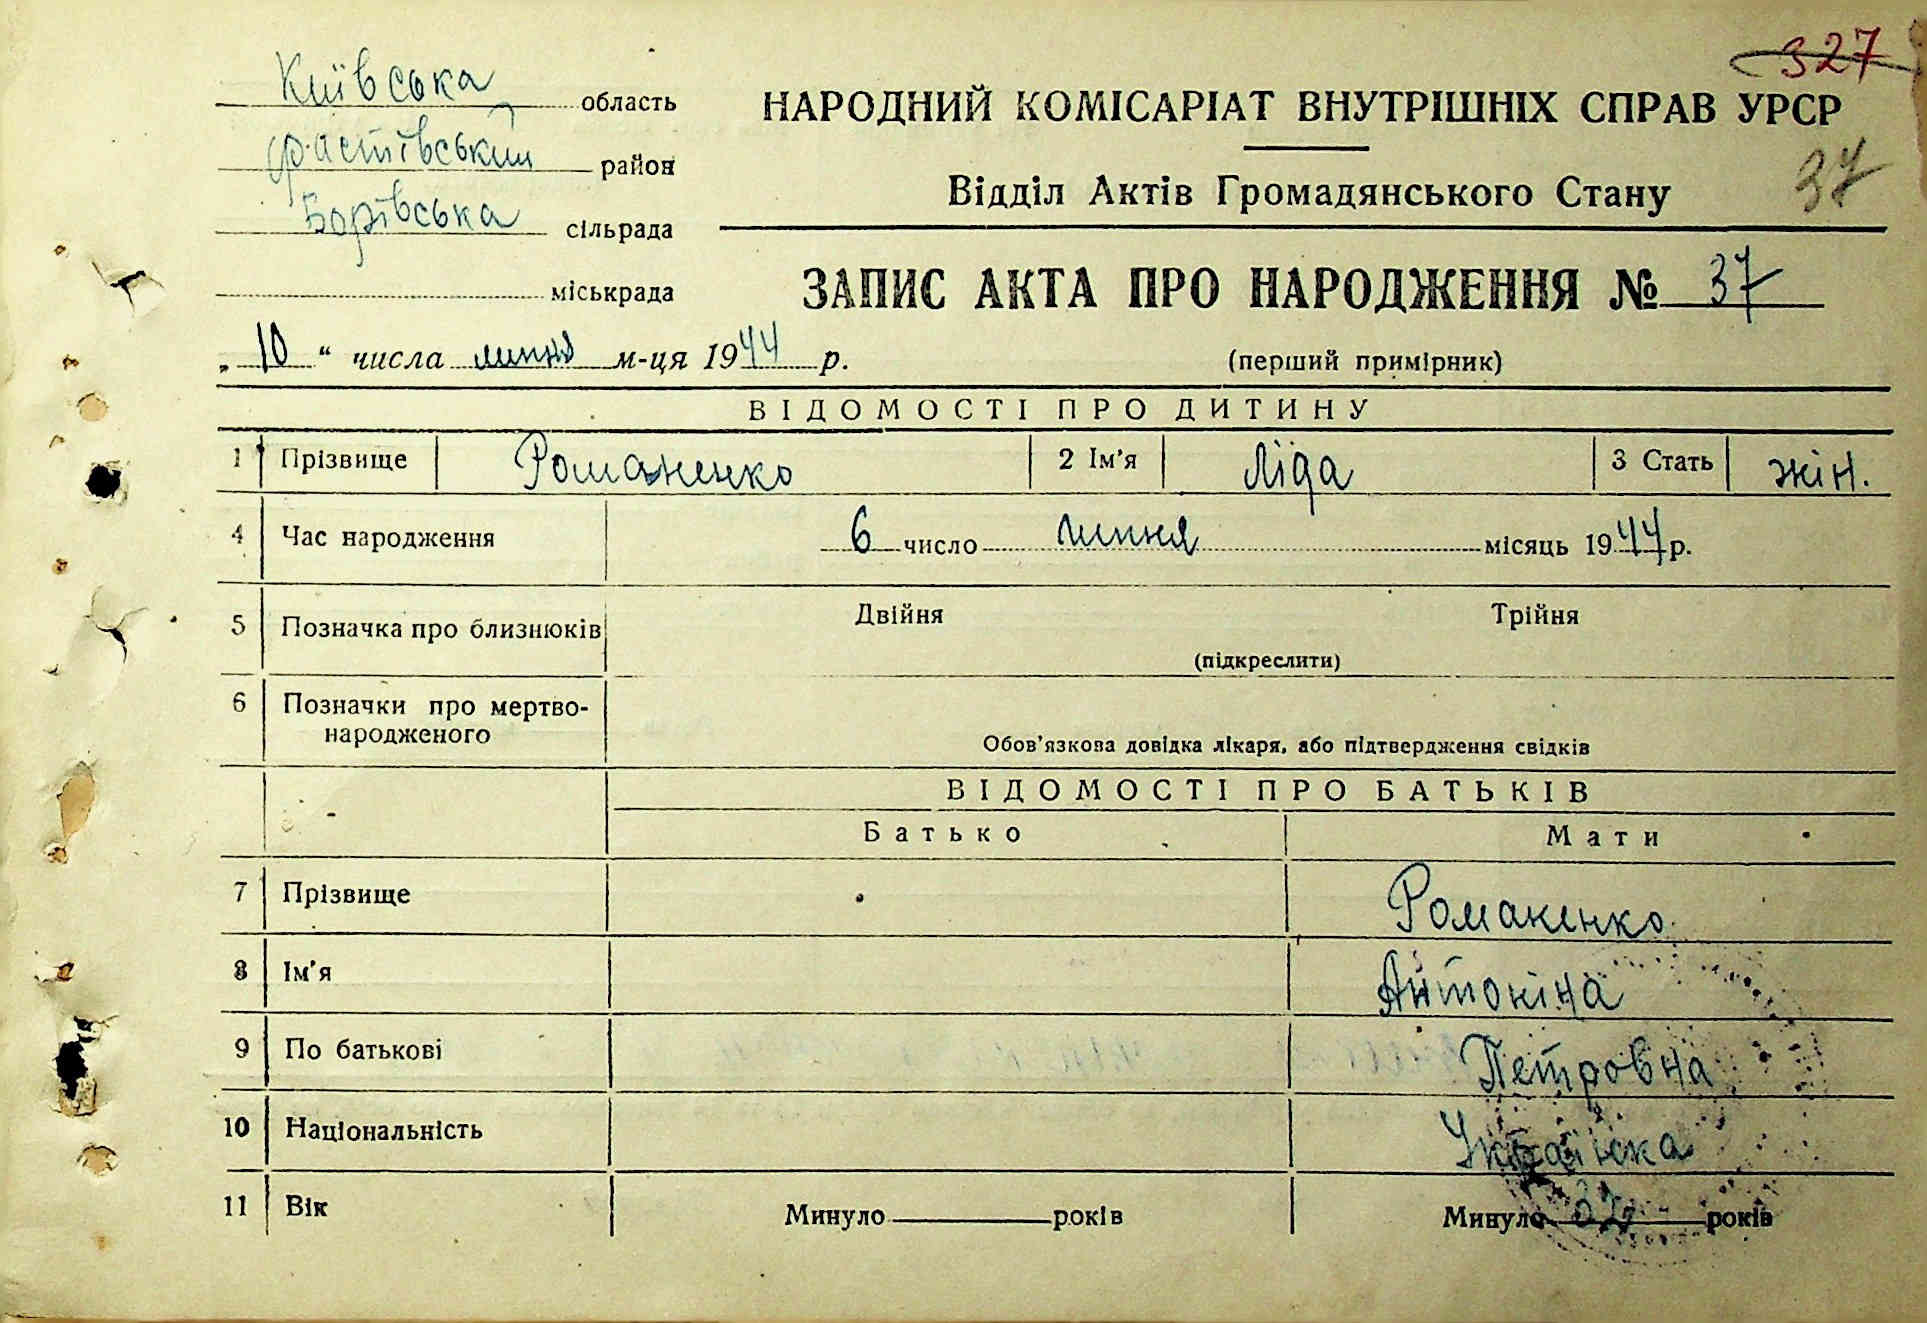 327
Київська область
Фастівський район
Борівська сільрада
міськрада
НАРОДНИЙ КОМІСАРІАТ ВНУТРІШНІХ СПРАВ УРСР
37
Відділ Актів Громадянського Стану
ЗАПИС АКТА ПРО НАРОДЖЕННЯ № 37
„10“ числа липня м-ця 1944 р.
(перший примірник)
ВІДОМОСТІ ПРО ДИТИНУ
1 Прізвище Романенко 2 Ім'я Ліда 3 Стать жін.
4 Час народження 6 число липня місяць 1944 р.
5 Позначка про близнюків Двійня Трійня
(підкреслити)
6 Позначки про мертво-
народженого
Обов'язкова довідка лікаря, або підтвердження свідків
ВІДОМОСТІ ПРО БАТЬКІВ
Батько Мати
7 Прізвище Романенко
8 Ім'я Антоніна
9 По батькові Петровна
10 Національність Українка
11 Вік Минуло років Минуло років